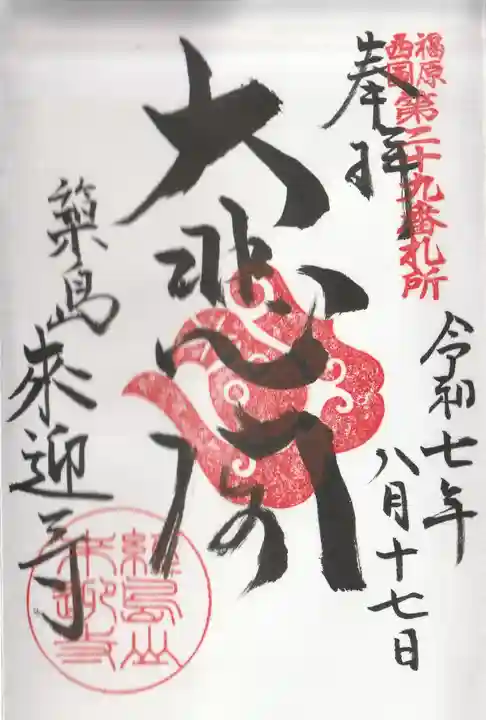 福原
西国
第二十九番札所
奉拝
令和七年
八月十七日
大悲閣
築島来迎寺